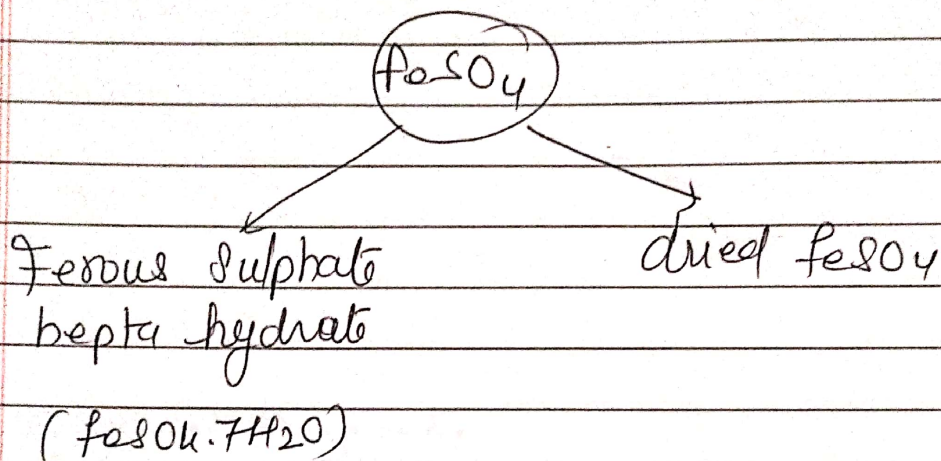 FeSO4
Ferous Sulphate
hepta hydrate
(FeSO4.7H2O)
dried FeSO4